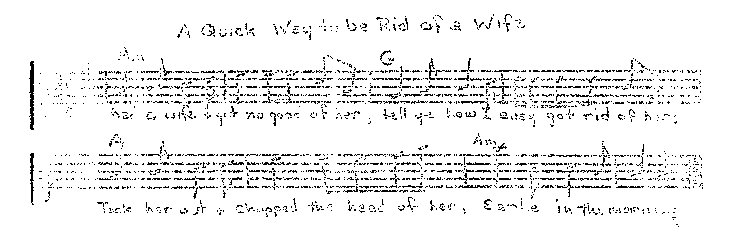 A Quick Way to be Rid of a Wife
Am G
had a wife & got no good of her, tell ye how I easy got rid of her,
A Am
Took her out & chopped the head of her, Earlie in the morning